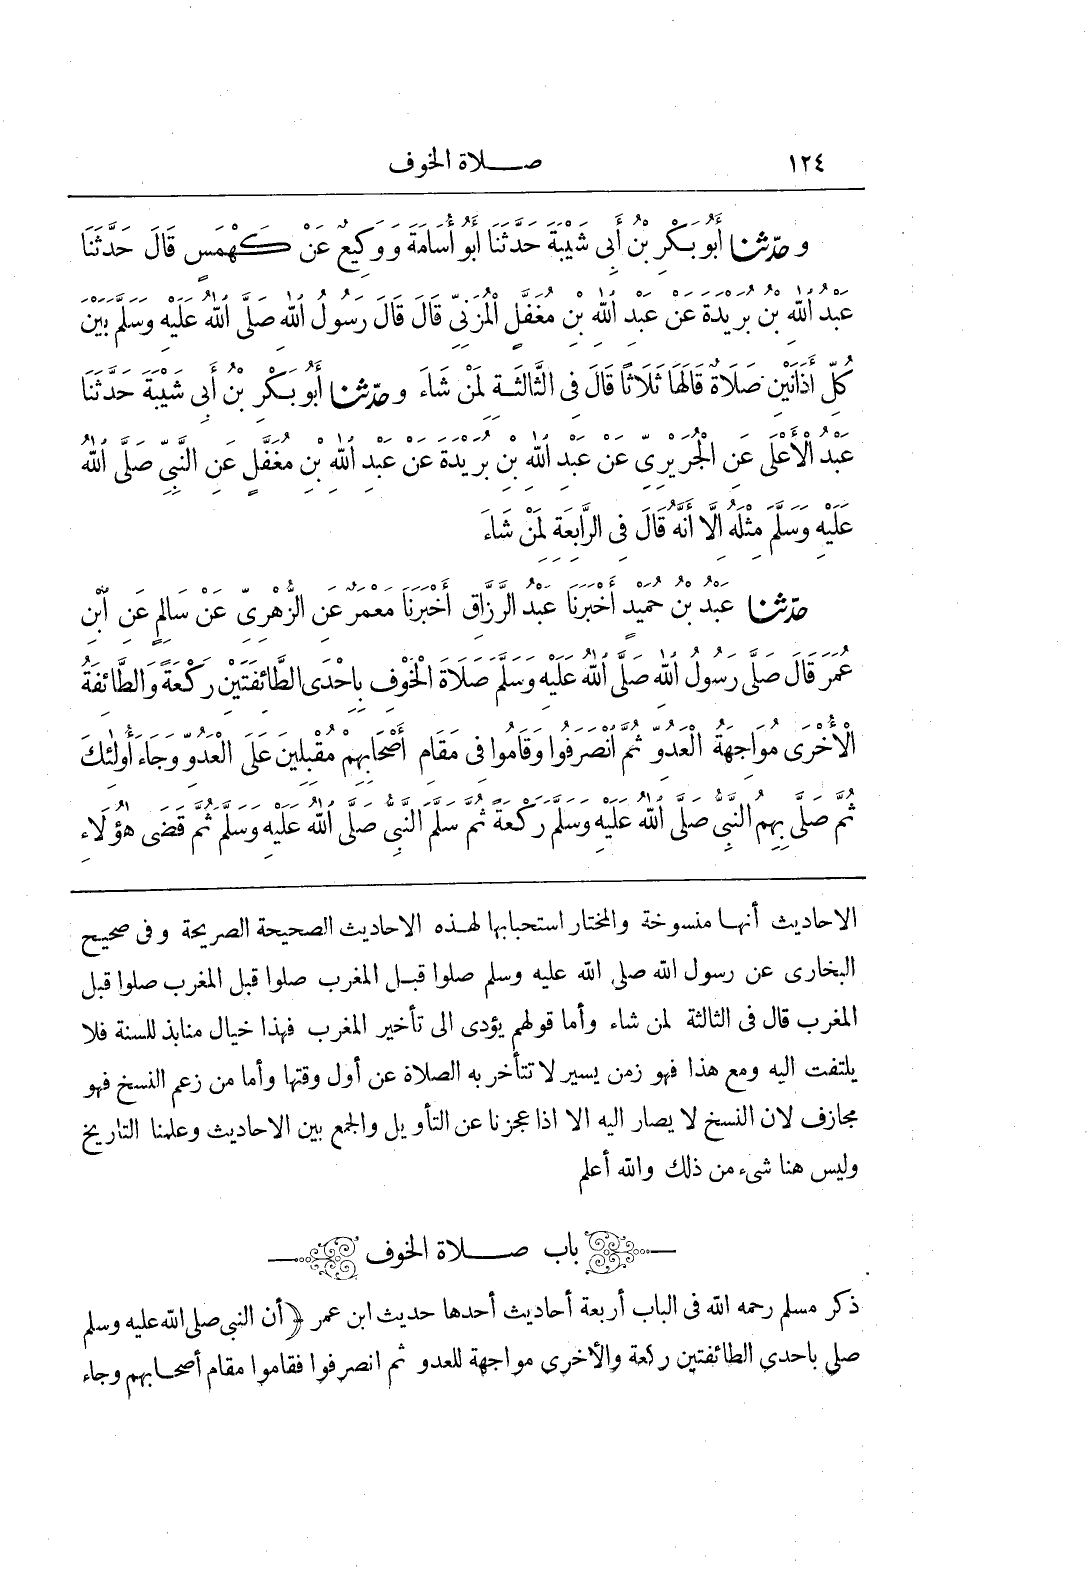 ١٢٤ صلاة الخوف
و حدّثنا أَبُو بَكْرِ بْنُ أَبِى شَيْبَةَ حَدَّثَنَا أَبُو أُسَامَةَ وَوَكِيعٌ عَنْ كَهْمَسٍ قَالَ حَدَّثَنَا
عَبْدُ اللهِ بْنُ بُرَيْدَةَ عَنْ عَبْدِ اللهِ بْنِ مُغَفَّلٍ الْمُزَنِىِّ قَالَ قَالَ رَسُولُ اللهِ صَلَّى اللهُ عَلَيْهِ وَسَلَّمَ بَيْنَ
كُلِّ أَذَانَيْنِ صَلَاةٌ قَالَهَا ثَلَاثًا قَالَ فِى الثَّالِثَةِ لِمَنْ شَاءَ و حدّثنا أَبُو بَكْرِ بْنُ أَبِى شَيْبَةَ حَدَّثَنَا
عَبْدُ الْأَعْلَى عَنِ الْجُرَيْرِىِّ عَنْ عَبْدِ اللهِ بْنِ بُرَيْدَةَ عَنْ عَبْدِ اللهِ بْنِ مُغَفَّلٍ عَنِ النَّبِىِّ صَلَّى اللهُ
عَلَيْهِ وَسَلَّمَ مِثْلَهُ إِلَّا أَنَّهُ قَالَ فِى الرَّابِعَةِ لِمَنْ شَاءَ
حدّثنا عَبْدُ بْنُ حُمَيْدٍ أَخْبَرَنَا عَبْدُ الرَّزَّاقِ أَخْبَرَنَا مَعْمَرٌ عَنِ الزُّهْرِىِّ عَنْ سَالِمٍ عَنِ ابْنِ
عُمَرَ قَالَ صَلَّى رَسُولُ اللهِ صَلَّى اللهُ عَلَيْهِ وَسَلَّمَ صَلَاةَ الْخَوْفِ بِإِحْدَى الطَّائِفَتَيْنِ رَكْعَةً وَالطَّائِفَةُ
الْأُخْرَى مُوَاجِهَةُ الْعَدُوِّ ثُمَّ انْصَرَفُوا وَقَامُوا فِى مَقَامِ أَصْحَابِهِمْ مُقْبِلِينَ عَلَى الْعَدُوِّ وَجَاءَ أُولَئِكَ
ثُمَّ صَلَّى بِهِمُ النَّبِىُّ صَلَّى اللهُ عَلَيْهِ وَسَلَّمَ رَكْعَةً ثُمَّ سَلَّمَ النَّبِىُّ صَلَّى اللهُ عَلَيْهِ وَسَلَّمَ ثُمَّ قَضَى هَؤُلَاءِ
الاحاديث أنها منسوخة والمختار استحبابها لهذه الاحاديث الصحيحة الصريحة وفى صحيح
البخارى عن رسول الله صلى الله عليه وسلم صلوا قبل المغرب صلوا قبل المغرب صلوا قبل
المغرب قال فى الثالثة لمن شاء وأما قولهم يؤدى الى تأخير المغرب فهذا خيال منابذ للسنة فلا
يلتفت اليه ومع هذا فهو زمن يسير لا تتأخر به الصلاة عن أول وقتها وأما من زعم النسخ فهو
مجازف لان النسخ لا يصار اليه الا اذا عجزنا عن التأويل والجمع بين الاحاديث وعلمنا التاريخ
وليس هنا شىء من ذلك والله أعلم
باب صلاة الخوف
ذكر مسلم رحمه الله فى الباب أربعة أحاديث أحدها حديث ابن عمر ﴿أن النبى صلى الله عليه وسلم
صلى باحدى الطائفتين ركعة والأخرى مواجهة للعدو ثم انصرفوا فقاموا مقام أصحابهم وجاء